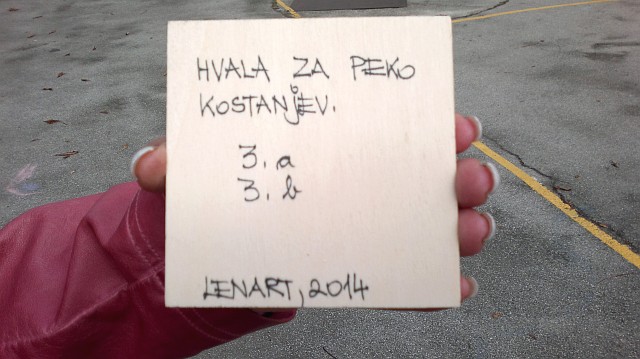 HVALA ZA PEKO
KOSTANJEV.
3. a
3. b
LENART, 2014